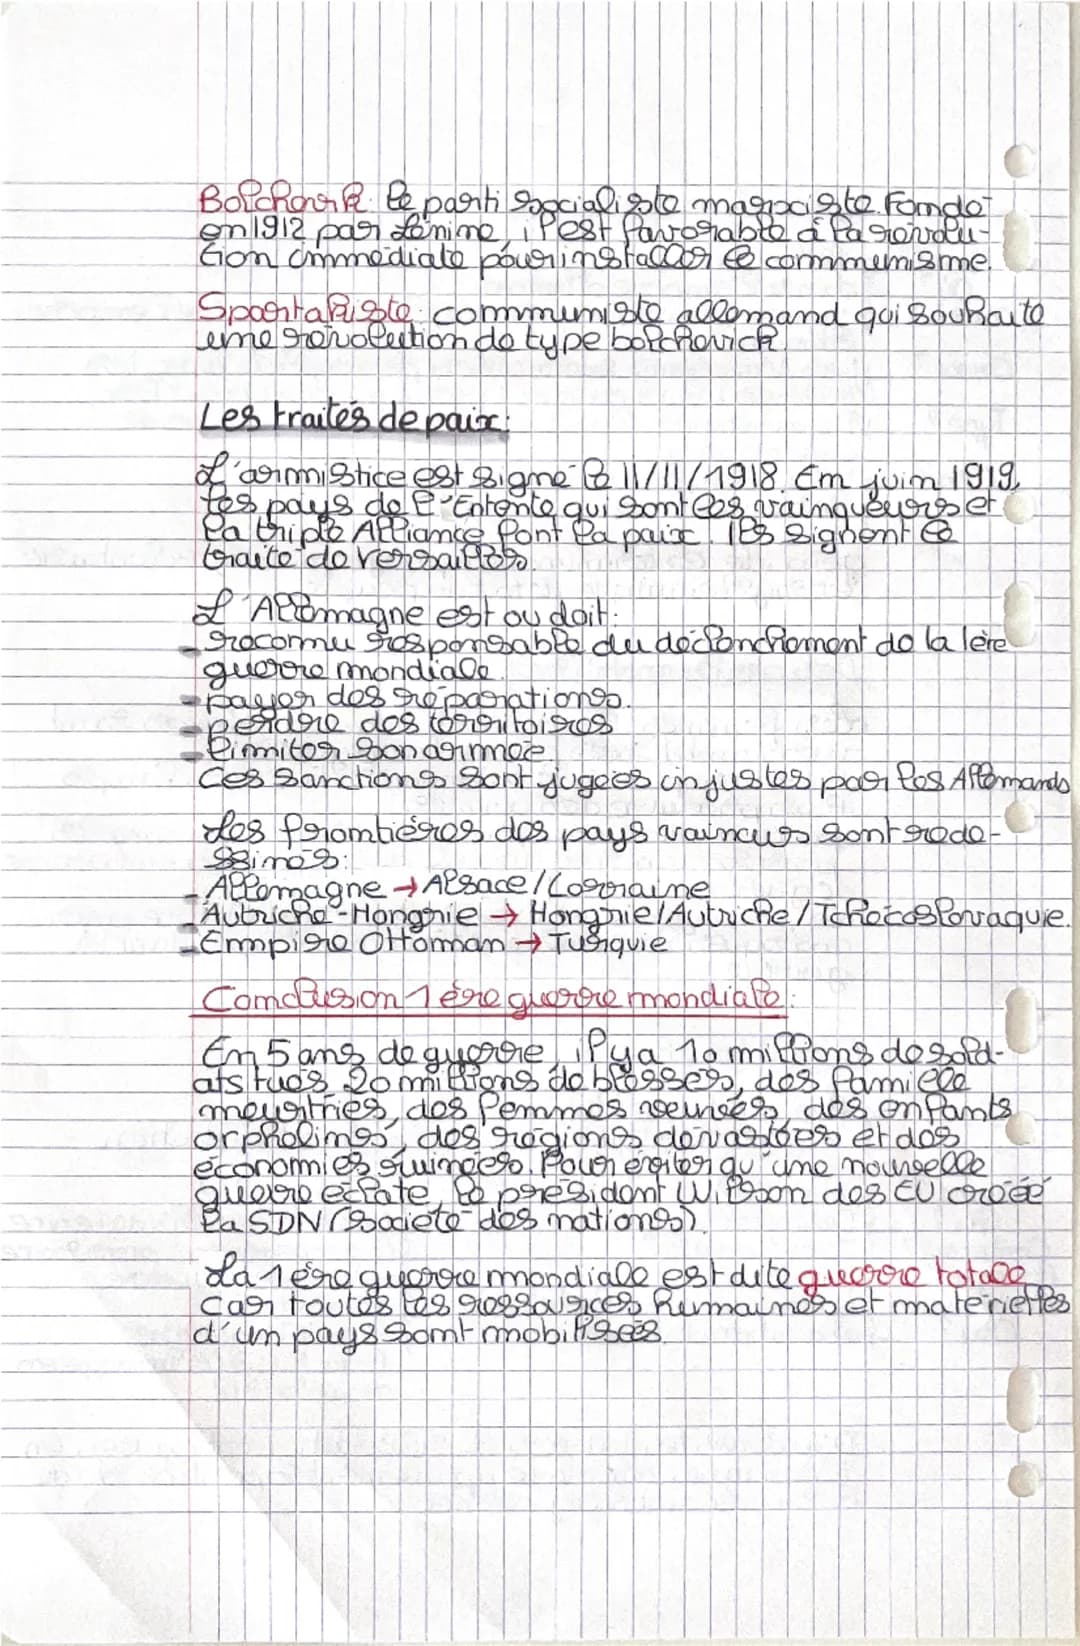 Bolchevik: le parti socialiste marxiste. Fondé
en 1912 par Lénine, il est favorable à la révolu-
tion immédiate pour installer le communisme.
Spartakiste: communiste allemand qui souhaite
une révolution de type bolchevick.
Les traités de paix:
L'armistice est signé le 11/11/1918. En juin 1919,
les pays de l'Entente qui sont les vainqueurs et
la triple Alliance font la paix. Ils signent le
traité de Versailles.
L'Allemagne est ou doit:
- reconnu responsable du déclenchement de la 1ère
guerre mondiale.
- payer des réparations.
- perdre des territoires
- limiter son armée
Ces sanctions sont jugées injustes par les Allemands
Les frontières des pays vaincus sont rede-
ssinés:
- Allemagne → Alsace/Lorraine
- Autriche-Hongrie → Hongrie/Autriche/Tchécoslovaquie.
- Empire Ottoman → Turquie
Conclusion 1ère guerre mondiale:
En 5 ans de guerre, il y a 10 millions de sold-
ats tués, 20 millions de blessés, des famille
meurtries, des femmes veuves, des enfants
orphelins, des régions dévastées et des
économies ruinées. Pour éviter qu'une nouvelle
guerre éclate, le président Wilson des EU créée
la SDN (société des nations).
La 1ère guerre mondiale est dite guerre totale
car toutes les ressources humaines et matérielles
d'un pays sont mobilisées.